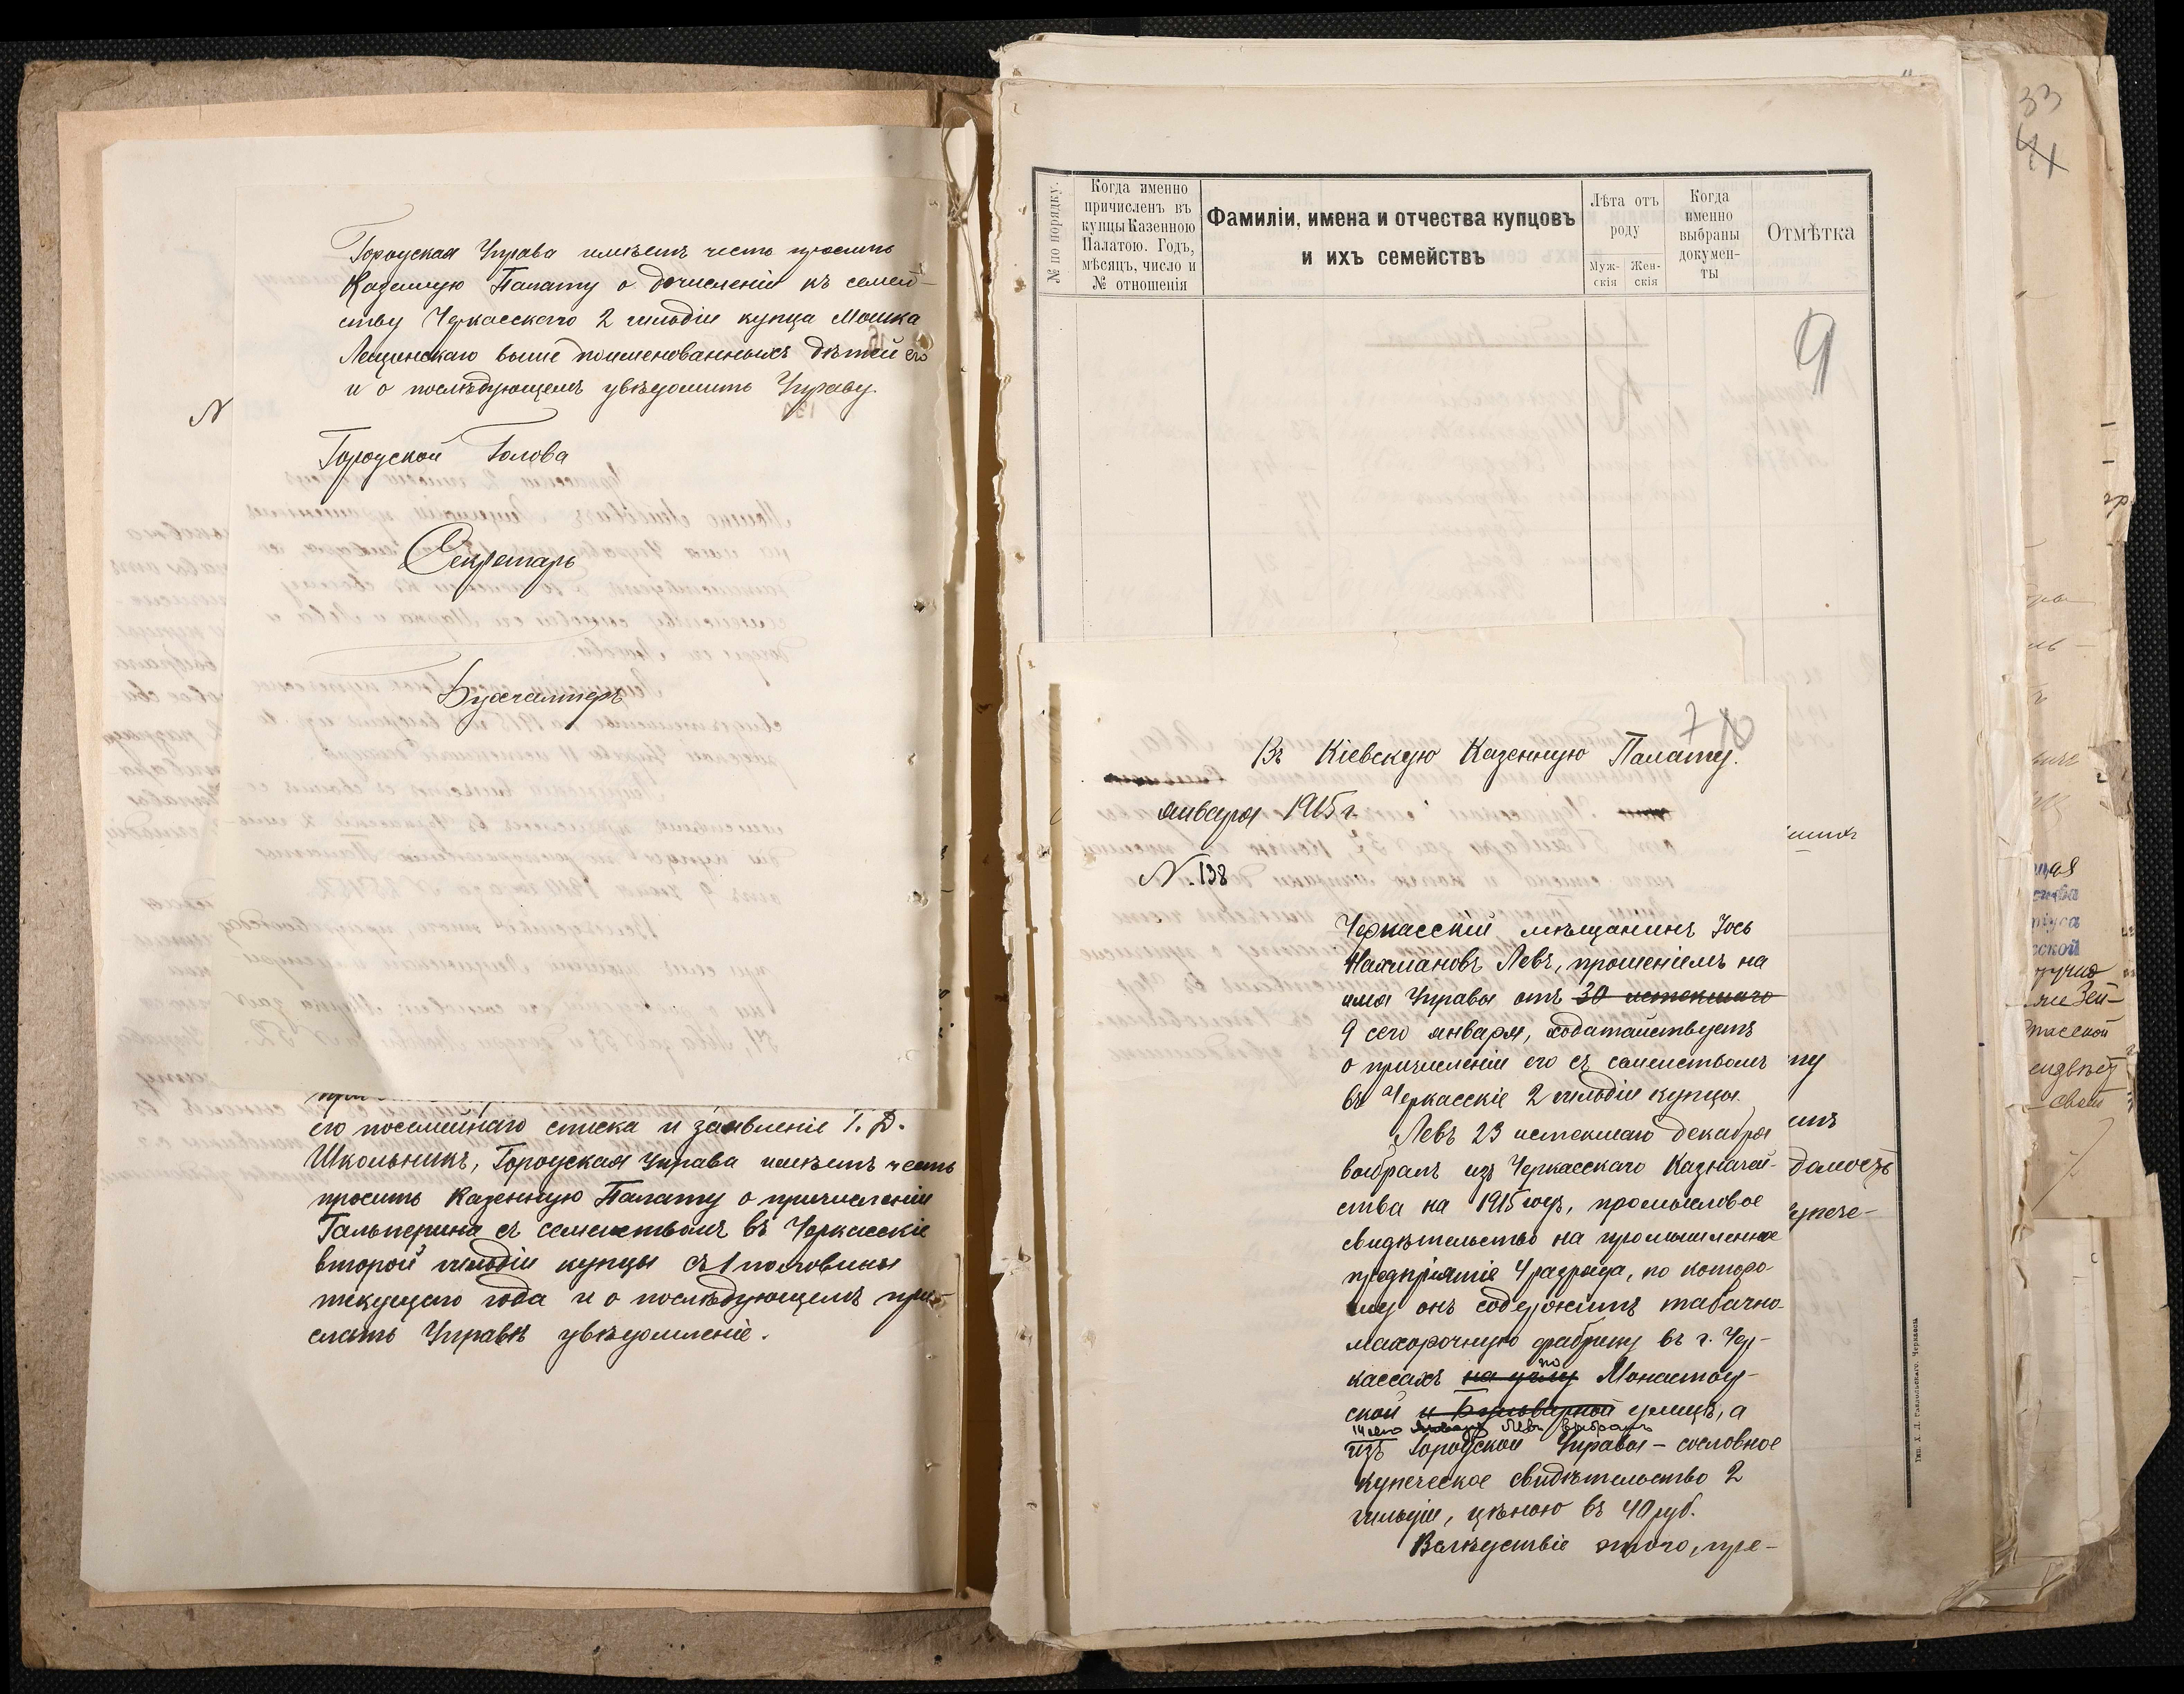 Городская Управа имѣетъ честь просить
Казенную Палату о дочисленіи къ семей-
ству Черкасскаго 2 гильдіи купца Мошка
Лещинскаго выше поименованныхъ дѣтей его
и о послѣдующемъ увѣдомить Управу.
N
Городской Голова
Секретарь
Бухгалтеръ
его посемейнаго списка и заявленіе Г. Д.
Школьникъ, Городская Управа имѣетъ честь
просить Казенную Палату о причисленіи
Гальперина съ семействомъ въ Черкасскіе
второй гильдіи купцы съ 1 половины
текущаго года и о послѣдующемъ при-
слать Управѣ увѣдомленіе.
33
41
№ по порядку.
Когда именно
причисленъ въ
купцы Казенною
Палатою. Годъ,
мѣсяцъ, число и
№ отношенія
Фамиліи, имена и отчества купцовъ
и ихъ семействъ
Лѣта отъ
роду
Муж-
скія
Жен-
скія
Когда
именно
выбраны
докумен-
ты
Отмѣтка
9
7
Въ Кіевскую Казенную Палату.
января 1915 г.
N. 138
Черкасскій мѣщанинъ Іось
Нахмановъ Левъ, прошеніемъ на
имя Управы отъ 30 истекшаго
9 сего января, ходатайствуетъ
о причисленіи его съ семействомъ
въ Черкасскіе 2 гильдіи купцы.
Левъ 23 истекшаго декабря
выбралъ изъ Черкасскаго Казначей-
ства на 1915 годъ, промысловое
свидѣтельство на промышленное
предпріятіе 4 разряда, по которо-
му онъ содержитъ табачно-
махорочную фабрику въ г. Чер-
кассахъ на углу по Монастыр-
ской и Бульварной улицѣ, а
14 сего января Левъ выбралъ
изъ Городской Управы - сословное
купеческое свидѣтельство 2
гильдіи, цѣною въ 40 руб.
Вслѣдствіе этого, пре-
Тип. Х. Д. Рапопольскаго. Черкассы